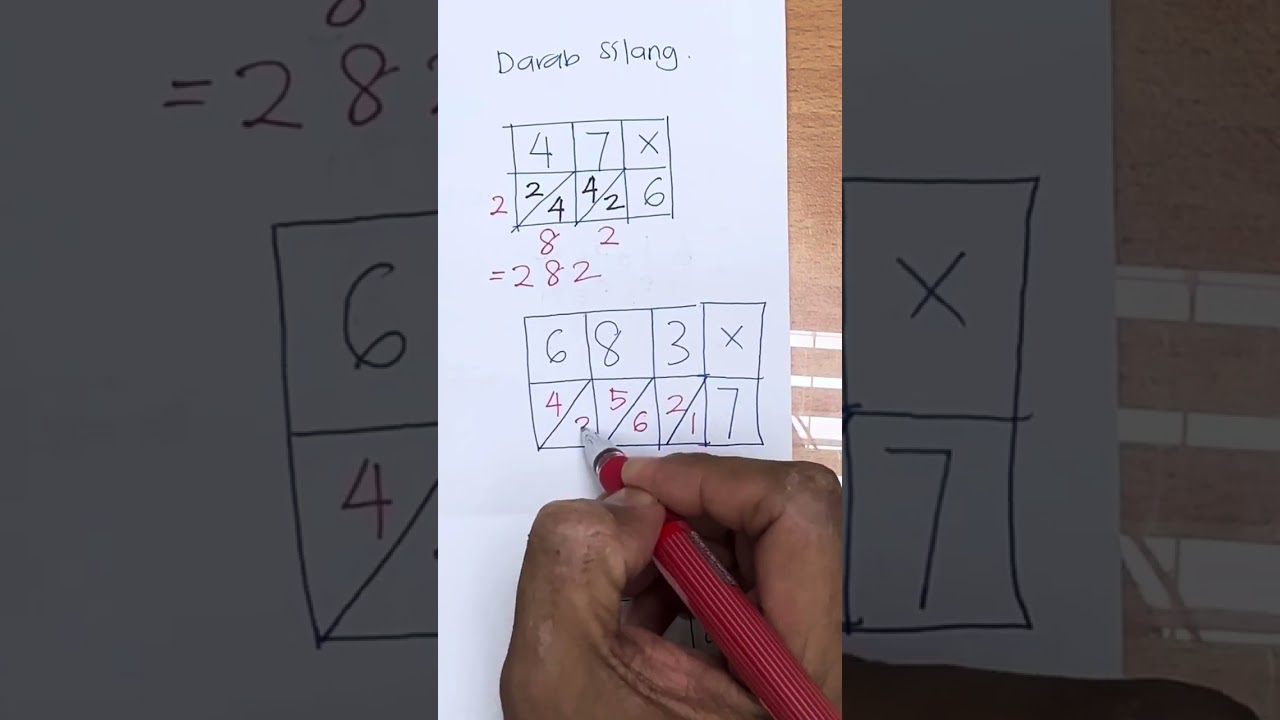 Darab sslang.
4 7 ×
2 2/4 4/2 6
8 2
= 282
6 8 3 ×
4/2 5/6 2/1 7